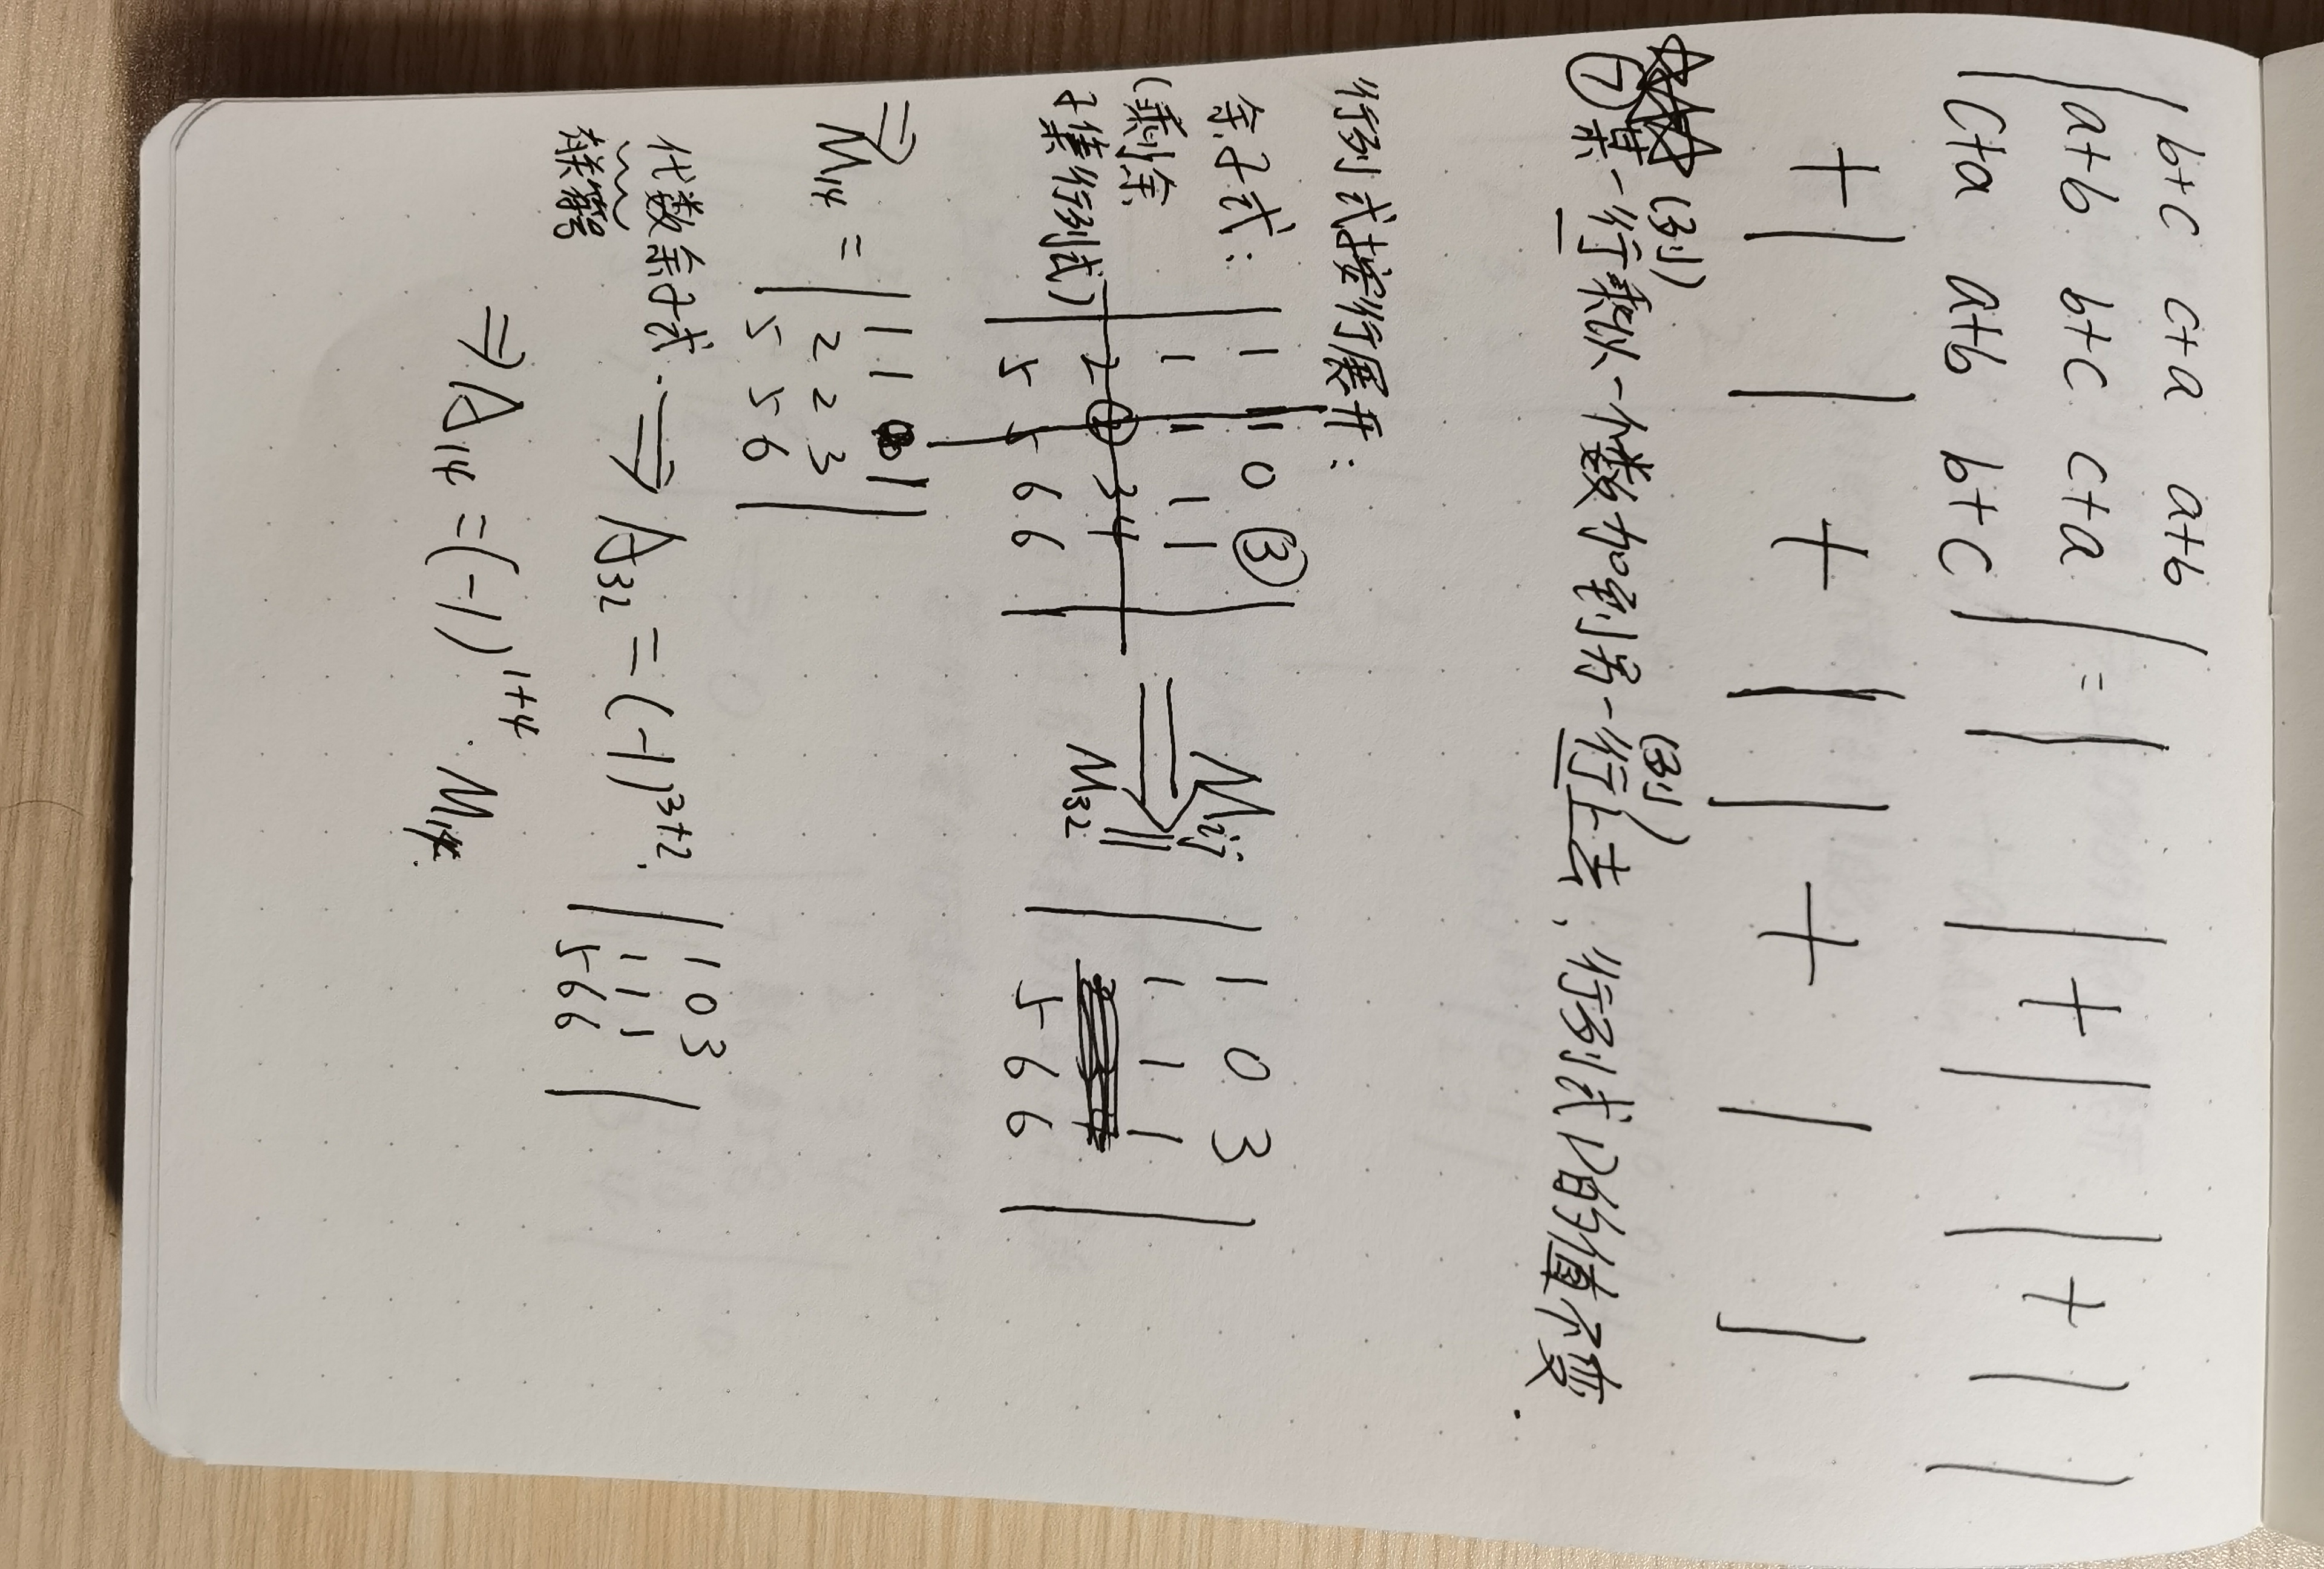 b+c c+a a+b
| a+b b+c c+a | = | | + | | + | |
c+a a+b b+c
+ | | + | | + | |
⑦ 某一行(列)乘以一个数加到另一行(列)上去、行列式D的值不变.
行列式按行展开:
余子式: | 1 1 0 ③ |
(剩余 1 1 1 1
子集行列式) 2 2 3 4
5 5 6 6
⟹ Mij
M32 = | 1 0 3 |
1 1 1
5 6 6
⇒ M14 = | 1 1 1 |
2 2 3
5 5 6
代数余子式. ⟹ A32 = (-1)^3+2 · | 1 0 3 |
1 1 1
5 6 6
⇒ A14 = (-1)^1+4 · M14.